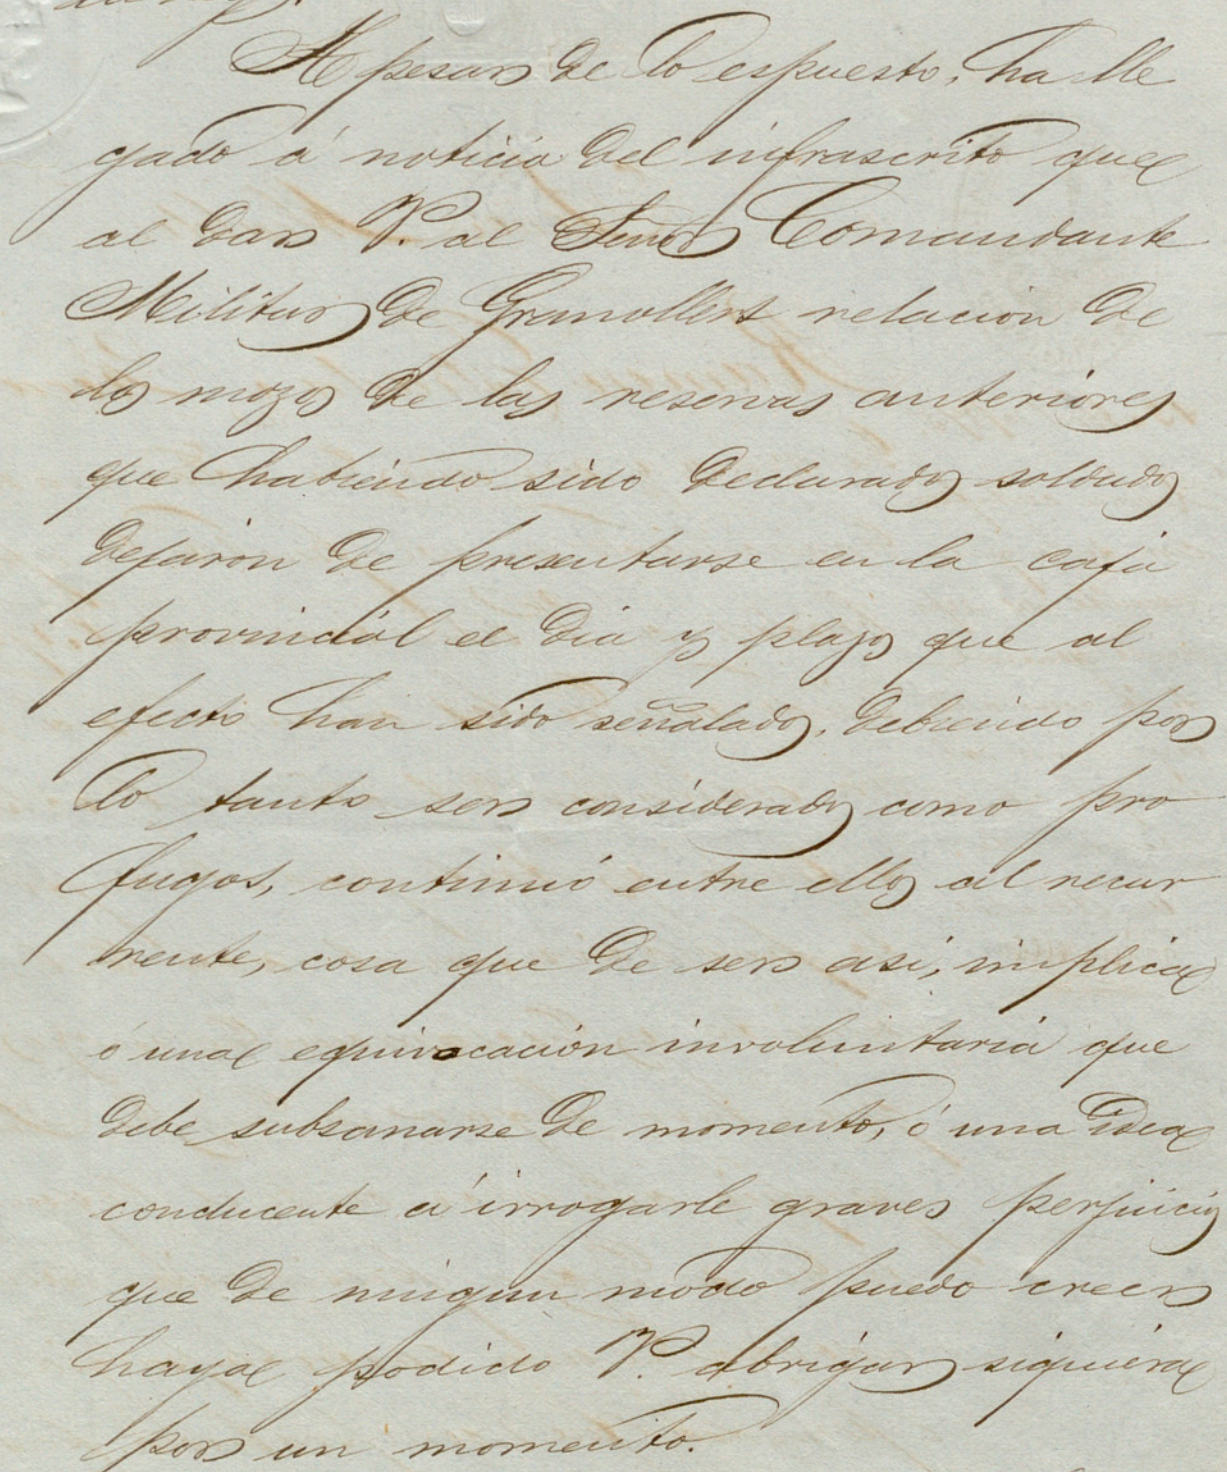 A pesar de lo espuesto, ha lle
gado á noticia del infrascrito que
al dar V. al Señor Comandante
Militar de Granollers relacion de
los mozos de las reservas anteriores
que habiendo sido declarados soldados
dejaron de presentarse en la caja
provincial el dia y plazo que al
efecto han sido señalados, debiendo por
lo tanto ser considerados como pro
fugos, continuó entre ellos al recur
rente, cosa que de ser asi, implica
ó una equivocación involuntaria que
debe subsanarse de momento, ó una idea
conducente á irrogarle graves perjuicios
que de ningun modo puedo creer
haya podido V. abrigar siquiera
por un momento.